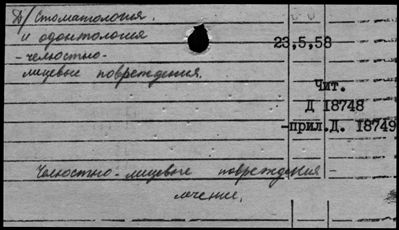 Д/ Стоматология.
и одонтология
-челюстно-
лицевые повреждения.
23,5,58
Чит.
Д 18748
-прил.Д. 18749
Челюстно-лицевые повреждения -
лечение.